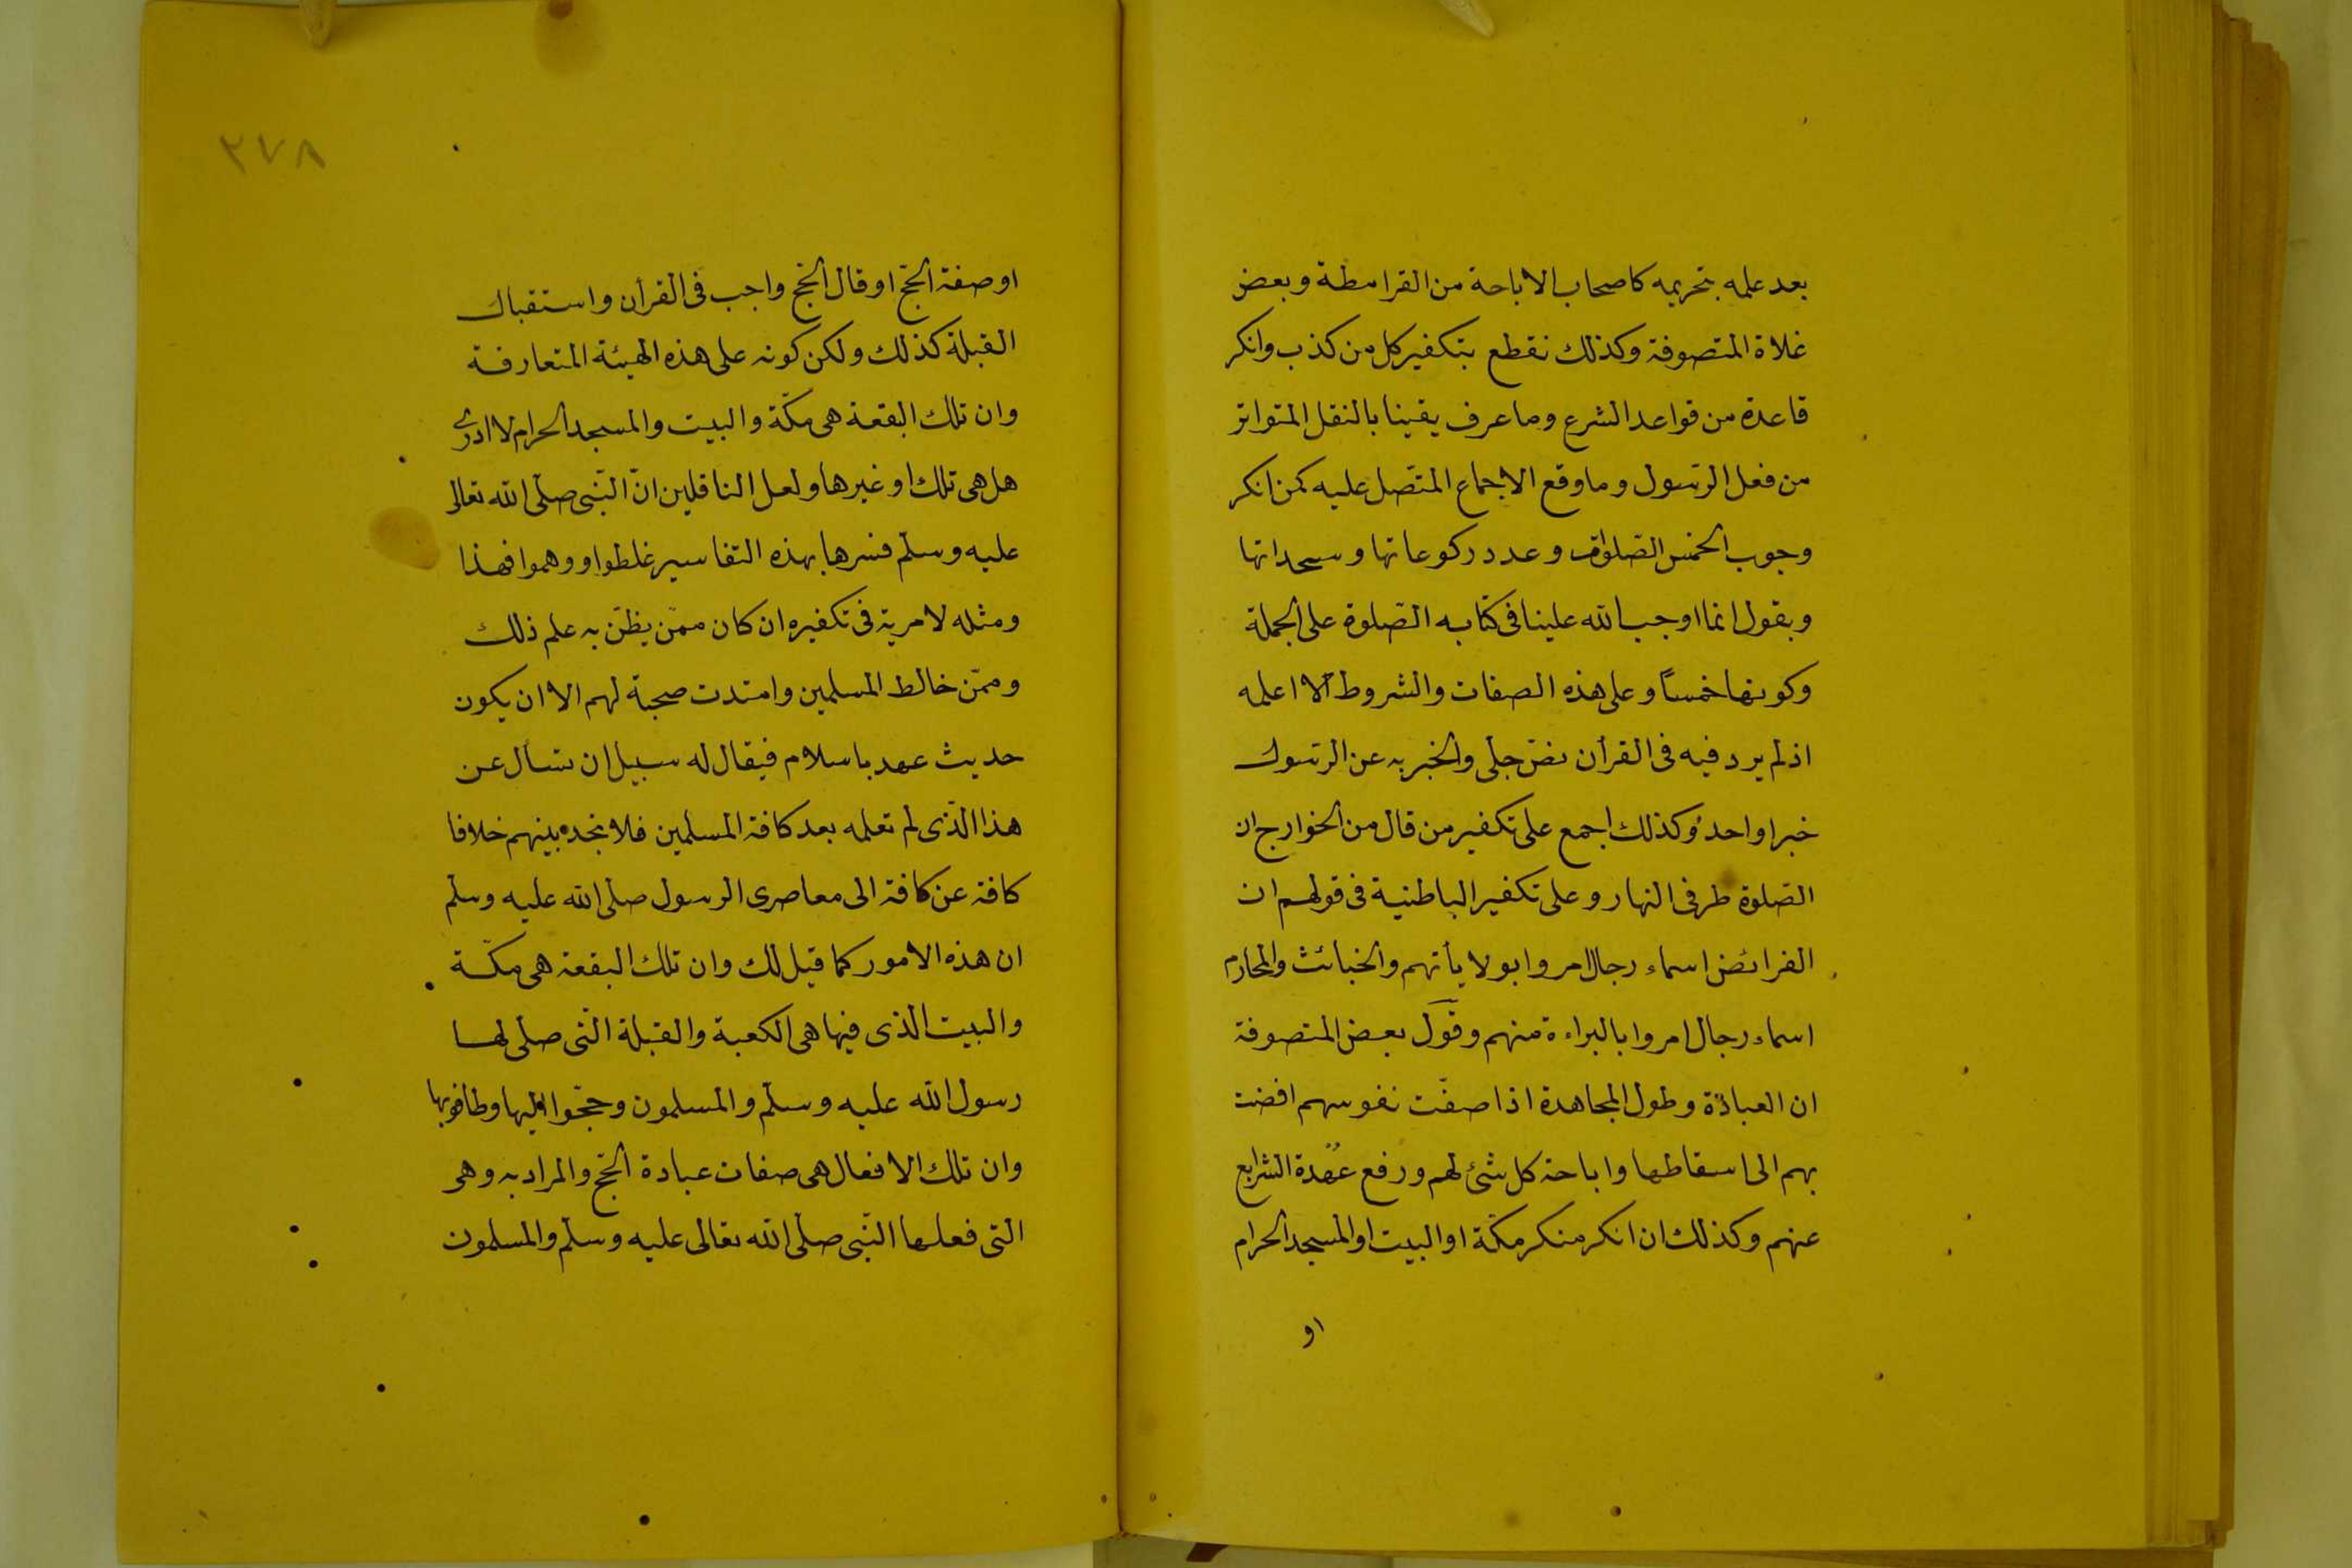 بعد علمه بتحريمه كاصحاب الاباحة من القرامطة وبعض
غلاة المتصوفة وكذلك نقطع بتكفير كل من كذب وانكر
قاعدة من قواعد الشرع وما عرف يقينا بالنقل المتواتر
من فعل الرّسول وما وقع الاجماع المتّصل عليه كمن انكر
وجوب الخمس الصّلوات وعدد ركوعاتها وسجداتها
ويقول انما اوجب الله علينا فى كتابه الصّلوة على الجملة
وكونها خمساً وعلى هذه الصفات والشروط لا اعلمه
اذ لم يرد فيه فى القرأن نصّ جلى والخبر به عن الرّسول
خبر واحد وكذلك اجمع على تكفير من قال من الخوارج ان
الصّلوة طرفى النهار وعلى تكفير الباطنية فى قولهم ان
الفرائض اسماء رجال امروا بولايأتهم والخبائث والمحارم
اسماء رجال امروا بالبراءة منهم وقول بعض المتصوفة
ان العبادة وطول المجاهدة اذا صفّت نفوسهم افضت
بهم الى اسقاطها واباحة كل شئ لهم ورفع عهدة الشرايع
عنهم وكذلك ان انكر منكر مكّة او البيت او المسجد الحرام
او
٢٧٨
او صفة الحجّ او قال الحجّ واجب فى القرأن واستقبال
القبلة كذلك ولكن كونه على هذه الهيئة المتعارفة
وان تلك البقعة هى مكّة والبيت والمسجد الحرام لا ادرى
هل هى تلك او غيرها ولعل الناقلين انّ النّبى صلّى الله تعالى
عليه وسلّم فسرها بهذه التفاسير غلطوا ووهموا فهذا
ومثله لا مرية فى تكفيره ان كان ممّن يظنّ به علم ذلك
وممّن خالط المسلمين وامتدت صحبة لهم الا ان يكون
حديث عهد باسلام فيقال له سبيل ان تسأل عن
هذا الّذى لم تعلمه بعد كافة المسلمين فلا تجده بينهم خلافا
كافة عن كافة الى معاصرى الرسول صلّى الله عليه وسلّم
ان هذه الامور كما قيل لك وان تلك البقعة هى مكّة
والبيت الذى فيها هى الكعبة والقبلة الّتى صلّى لها
رسول الله عليه وسلّم والمسلمون وحجّوا اليها وطافوا بها
وان تلك الافعال هى صفات عبادة الحجّ والمراد به وهى
التى فعلها النّبى صلّى الله تعالى عليه وسلّم والمسلمون